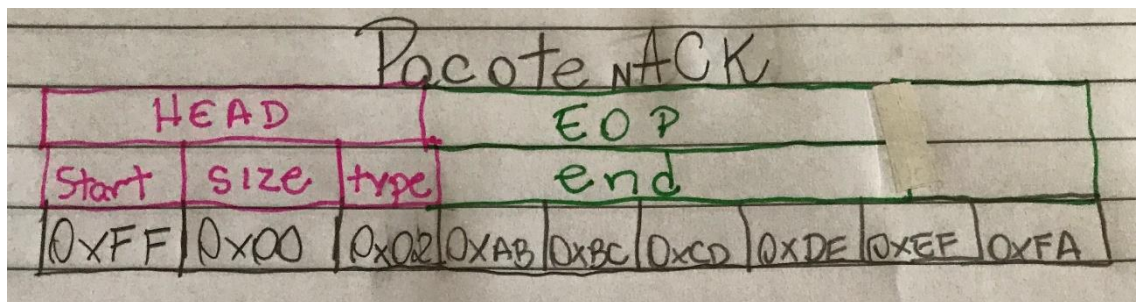 Pacote nACK
HEAD EOP
Start size type end
0xFF 0x00 0x02 0xAB 0xBC 0xCD 0xDE 0xEF 0xFA